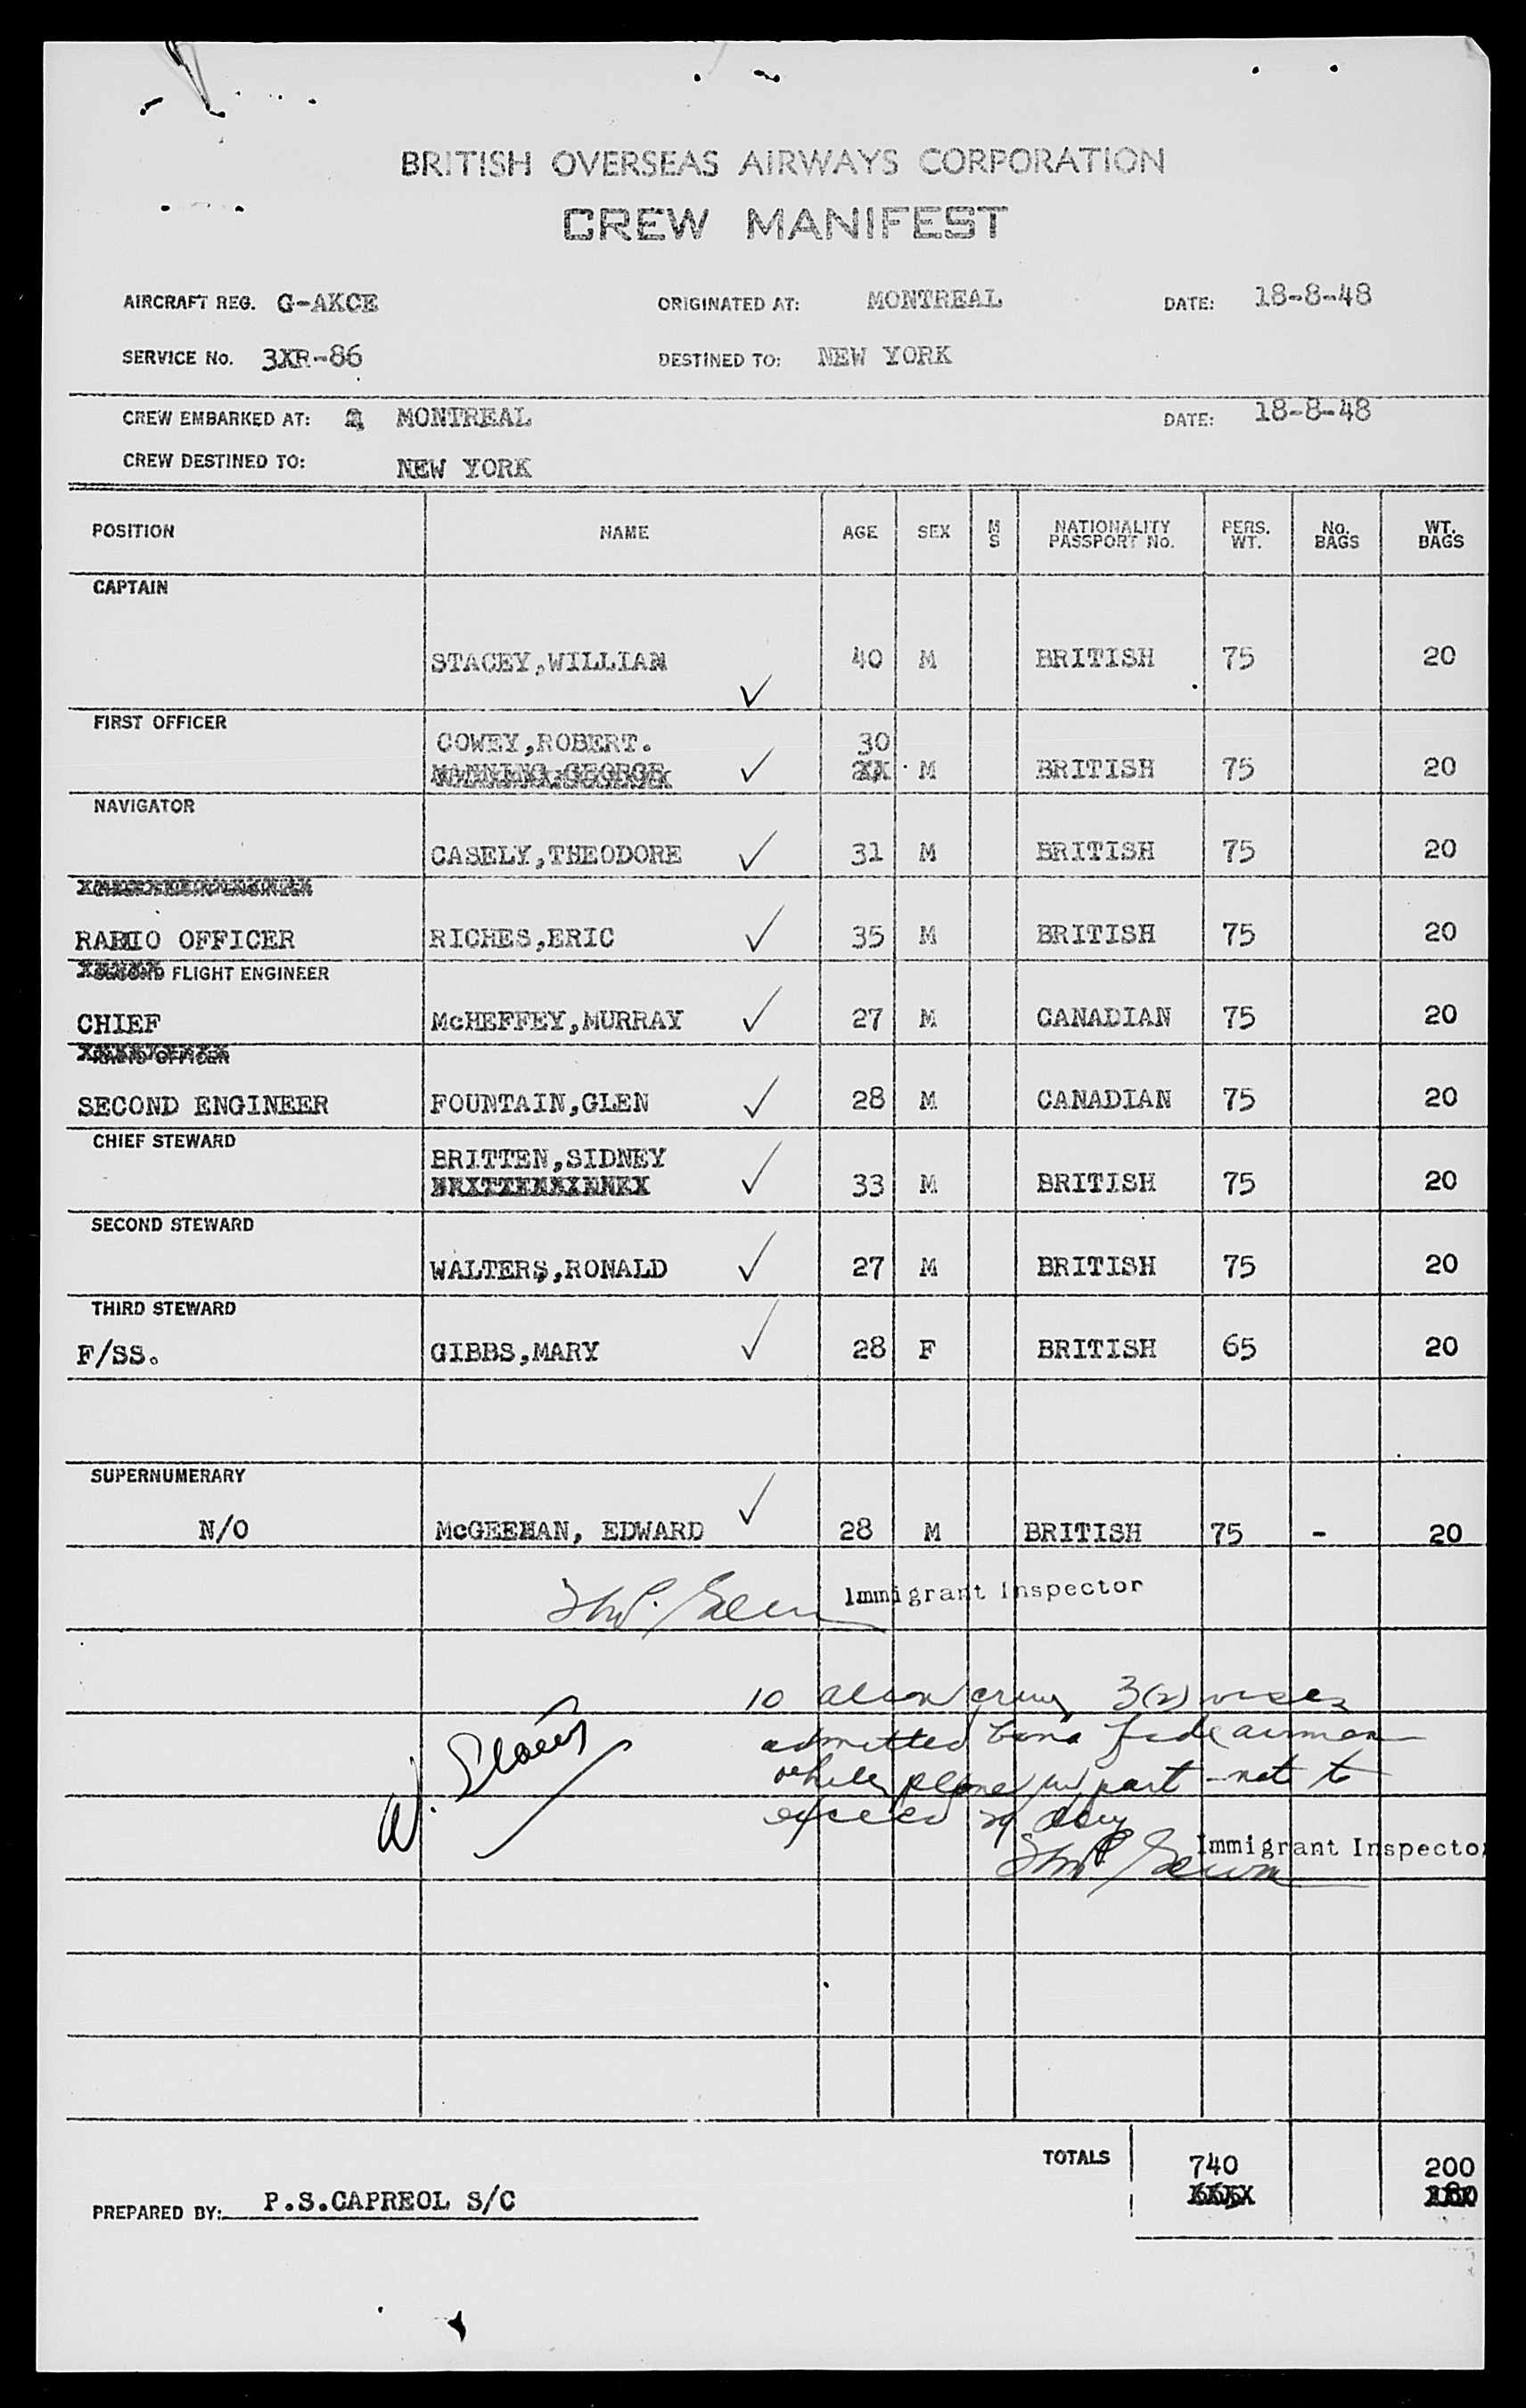 BRITISH OVERSEAS AIRWAYS CORPORATION
CREW MANIFEST
AIRCRAFT REG. G-AKCE ORIGINATED AT: MONTREAL DATE: 18-8-48
SERVICE No. 3XR-86 DESTINED TO: NEW YORK
CREW EMBARKED AT: MONTREAL DATE: 18-8-48
CREW DESTINED TO: NEW YORK
POSITION NAME AGE SEX M S NATIONALITY PASSPORT No. PERS. WT. No. BAGS WT. BAGS
CAPTAIN
STACEY,WILLIAN 40 M BRITISH 75 20
FIRST OFFICER
COWEY,ROBERT. 30
MANNING,GEORGE M BRITISH 75 20
NAVIGATOR
CASELY,THEODORE 31 M BRITISH 75 20
RADIO OFFICER RICHES,ERIC 35 M BRITISH 75 20
SECOND FLIGHT ENGINEER
CHIEF McHEFFEY,MURRAY 27 M CANADIAN 75 20
RADIO OFFICER
SECOND ENGINEER FOUNTAIN,GLEN 28 M CANADIAN 75 20
CHIEF STEWARD
BRITTEN,SIDNEY
33 M BRITISH 75 20
SECOND STEWARD
WALTERS,RONALD 27 M BRITISH 75 20
THIRD STEWARD
F/SS. GIBBS,MARY 28 F BRITISH 65 20
SUPERNUMERARY
N/O McGEEHAN, EDWARD 28 M BRITISH 75 - 20
Immigrant Inspector
10 alien crew 3(2) visas
admitted bona fide airmen
while plane in port - not to
exceed 29 days
Immigrant Inspector
TOTALS 740 200
665 180
PREPARED BY: P.S.CAPREOL S/C